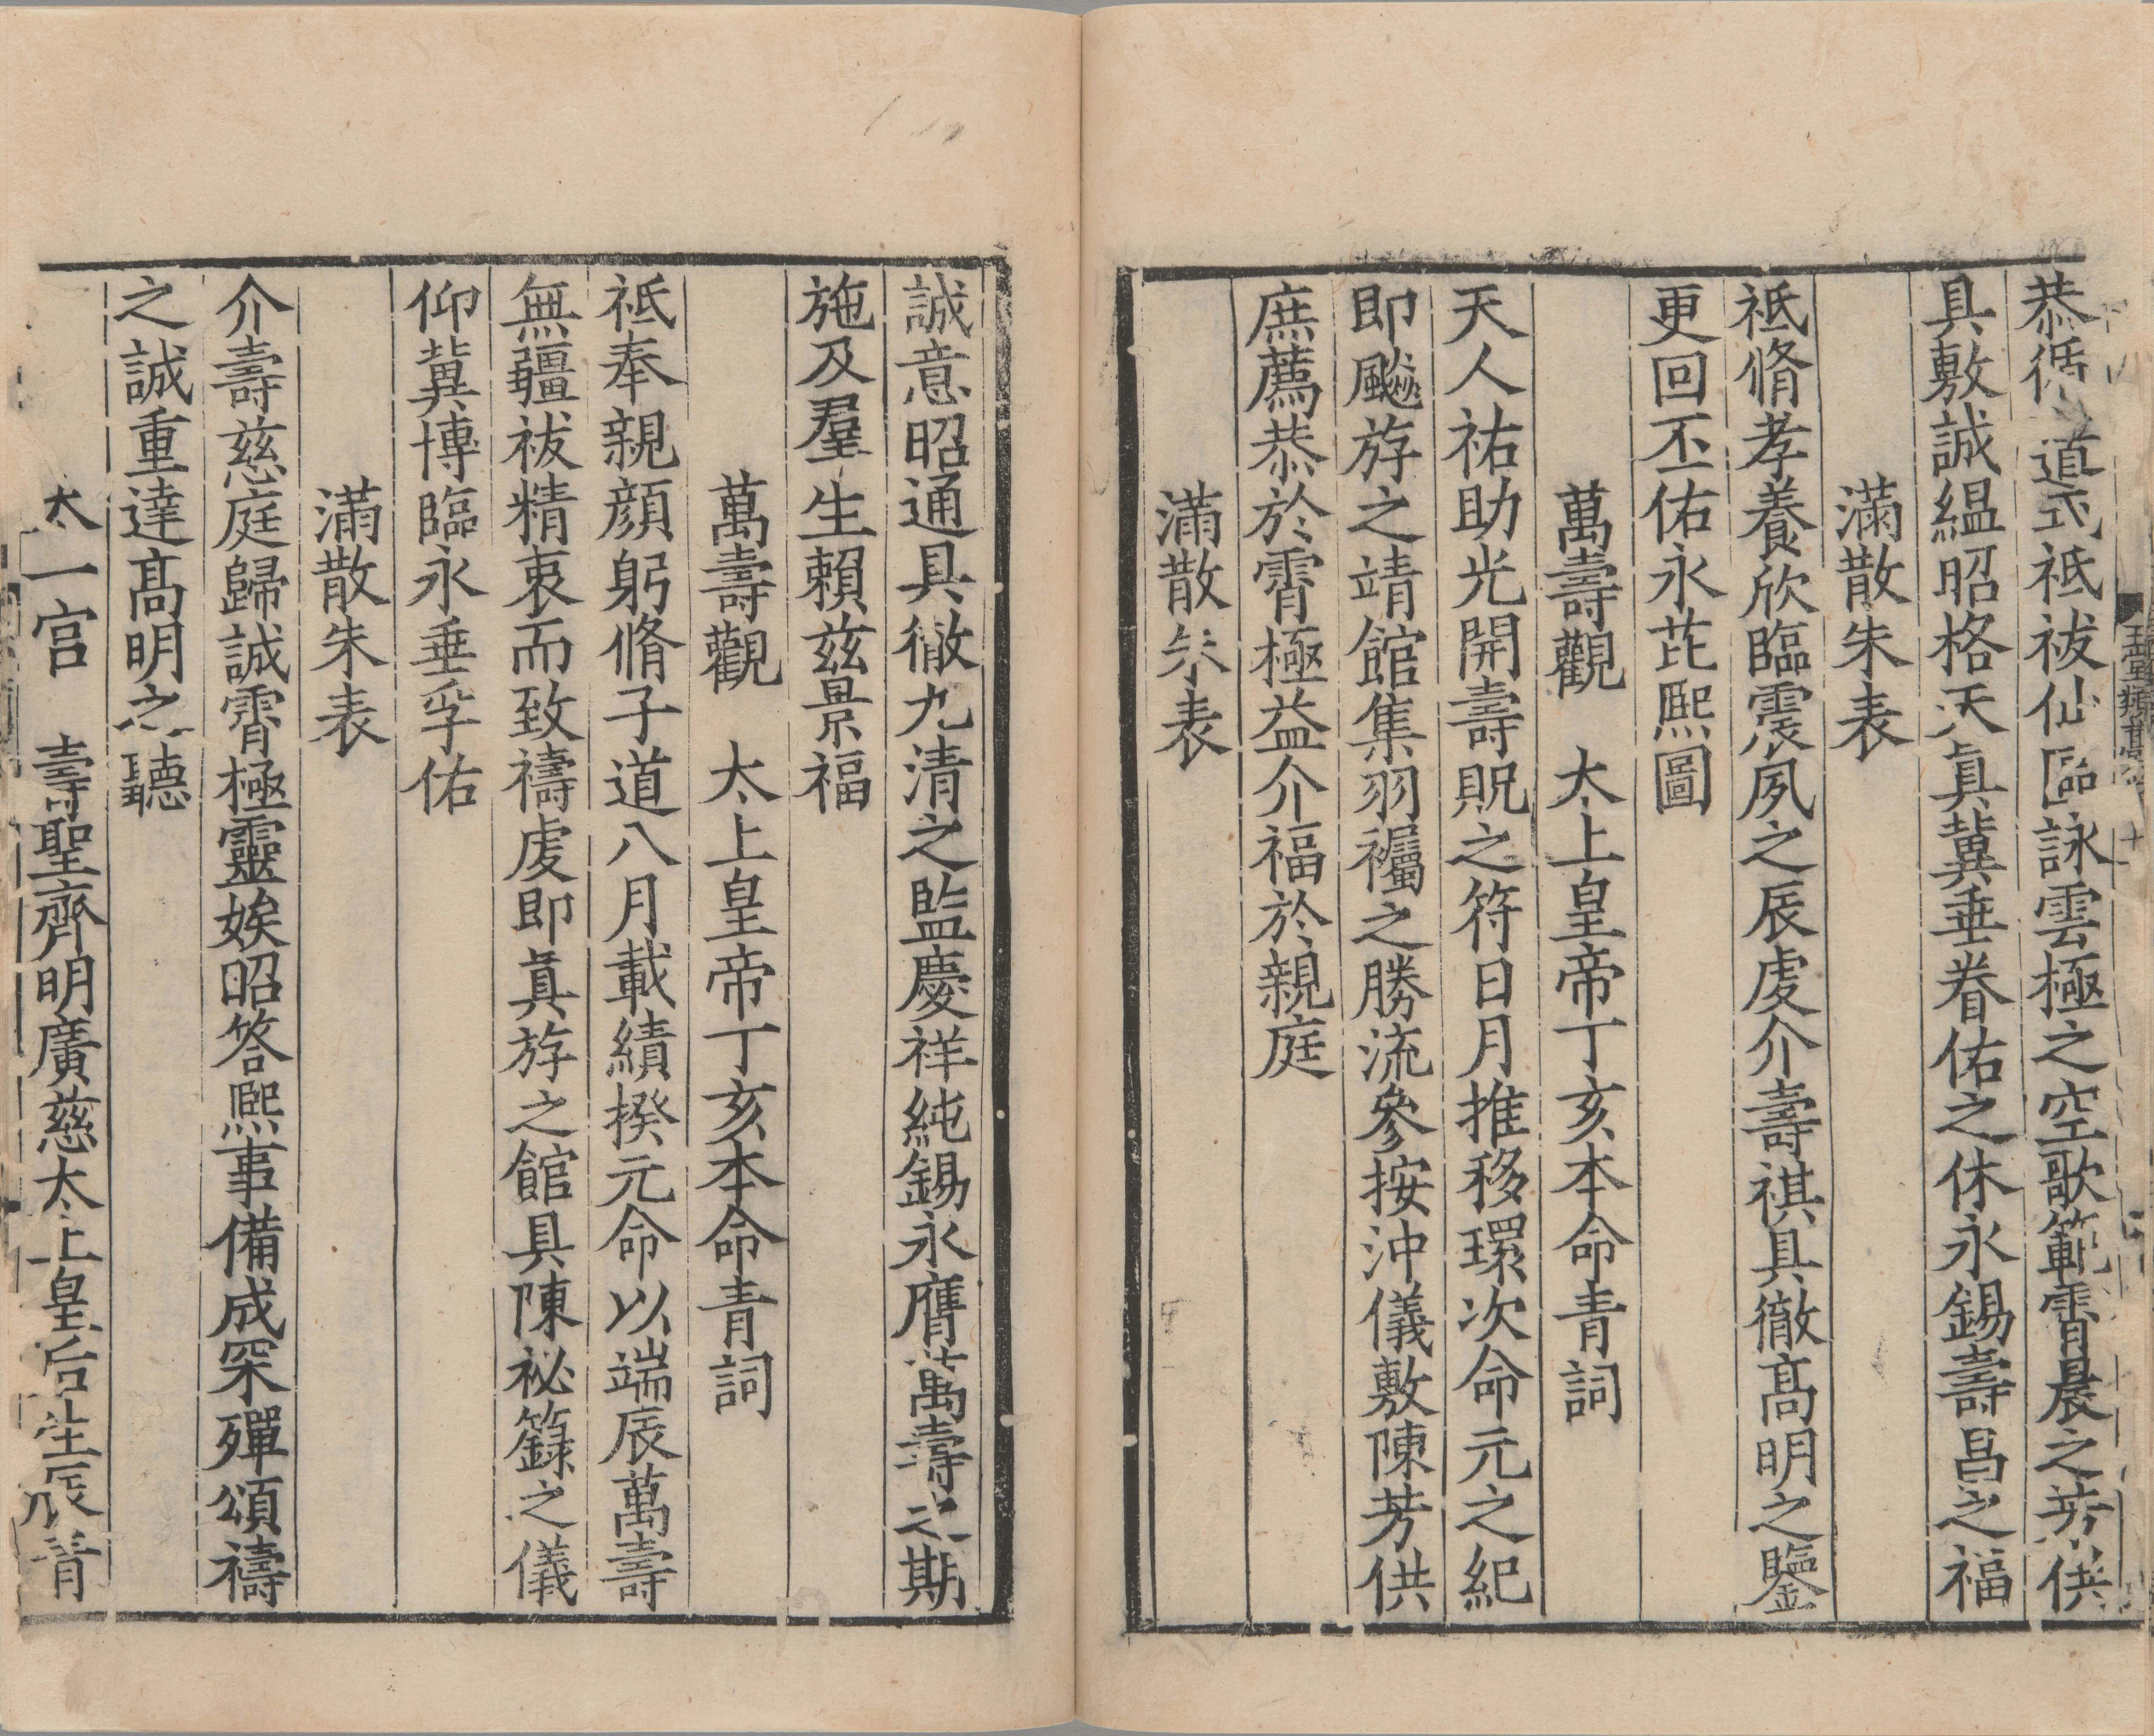 恭循道式祗祓仙區詠雲極之空歌範霄晨之芳供
具敷誠緼昭格天眞冀垂眷佑之休永錫壽昌之福
滿散朱表
祗脩孝養欣臨震夙之辰虔介壽祺具徹髙明之鑒
更回丕佑永芘熙圖
萬壽觀　太上皇帝丁亥本命青詞
天人祐助光開壽貺之符日月推移環次命元之紀
即飈斿之靖館集羽襹之勝流參按沖儀敷陳芳供
庶薦恭於霄極益介福於親庭
滿散朱表
誠意昭通具徹九清之監慶祥純錫永膺萬壽之期
施及羣生賴兹景福
萬壽觀　太上皇帝丁亥本命青詞
祗奉親顔躬脩子道八月載績揆元命以端辰萬壽
無疆祓精衷而致禱虔即眞斿之館具陳祕籙之儀
仰冀博臨永垂孚佑
滿散朱表
介壽慈庭歸誠霄極靈娭昭答熙事備成罙殫頌禱
之誠重達髙明之聽
太一宮　壽聖齊明廣慈太上皇后生辰青